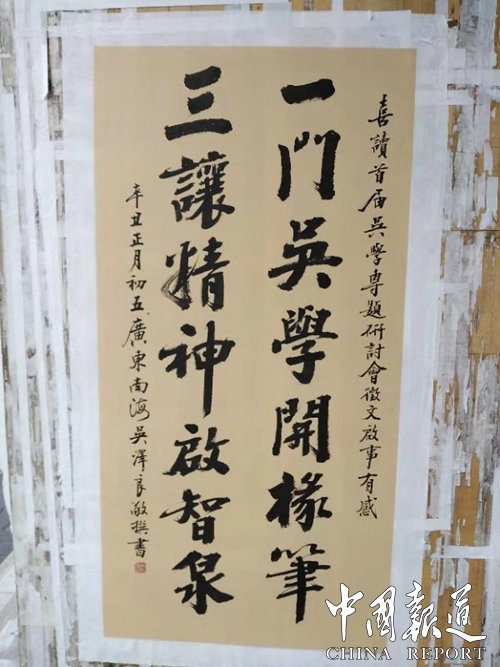 喜讀首届吳學専題研討會徵文啟事有感
一門吳學開椽筆
三讓精神啟智泉
辛丑正月初五廣東南海吳澤良敬撰書
中國報道
CHINA REPORT